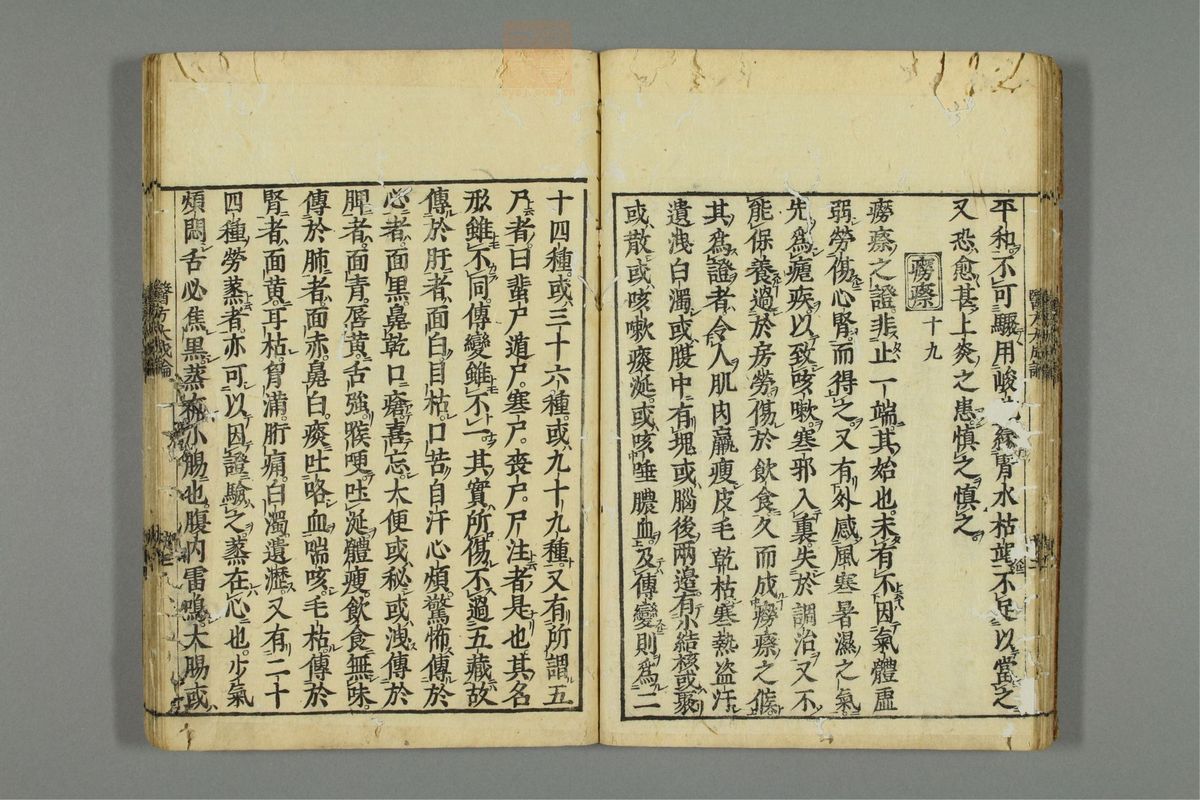 平和不可驟用峻 腎水枯竭不足以當之
又恐愈甚上炎之患慎之慎之
癆瘵 十九
癆瘵之證非止一端其始也未有不因氣體虛
弱勞傷心腎而得之又有外感風寒暑濕之氣
先為瘧疾以致咳嗽寒邪入裏失於調治又不
能保養過於房勞傷於飲食久而成癆瘵之候
其為證者令人肌肉羸瘦皮毛乾枯寒熱盜汗
遺洩白濁或腹中有塊或腦後兩邉有小結核或聚
或散或咳嗽痰涎或咳唾膿血及傳變則為二
十四種或三十六種或九十九種又有所謂五
尸者曰蜚尸遁尸寒尸喪尸尸注者是也其名
形雖不同傳變雖不一其實所傷不過五藏故
傳於肝者面白目枯口苦自汗心煩驚怖傳於
心者面黒鼻乾口瘡喜忘大便或秘或洩傳於
脾者面青唇黄舌強喉哽吐涎體瘦飲食無味
傳於肺者面赤鼻白痰吐咯血喘咳毛枯傳於
腎者面黄耳枯胷滿胻痛白濁遺瀝又有二十
四種勞蒸者亦可以因證驗之蒸在心也少氣
煩悶舌必焦黒蒸在小腸也腹内雷鳴大腸或